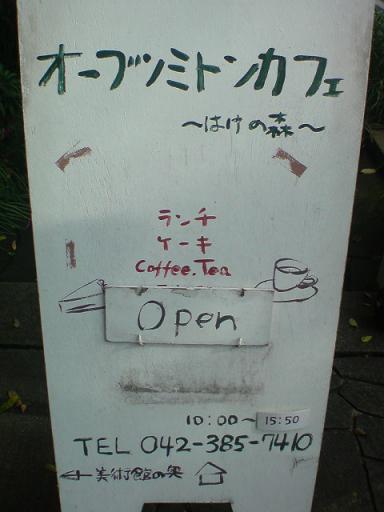 オーブンミトンカフェ
～はけの森～
ランチ
ケーキ
Coffee.Tea
Open
10:00～15:50
TEL 042-385-7410
←美術館の奥